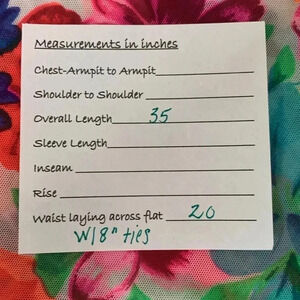 Measurements in inches
Chest-Armpit to Armpit
Shoulder to Shoulder
Overall Length 35
Sleeve Length
Inseam
Rise
Waist laying across flat 20
W/8" ties